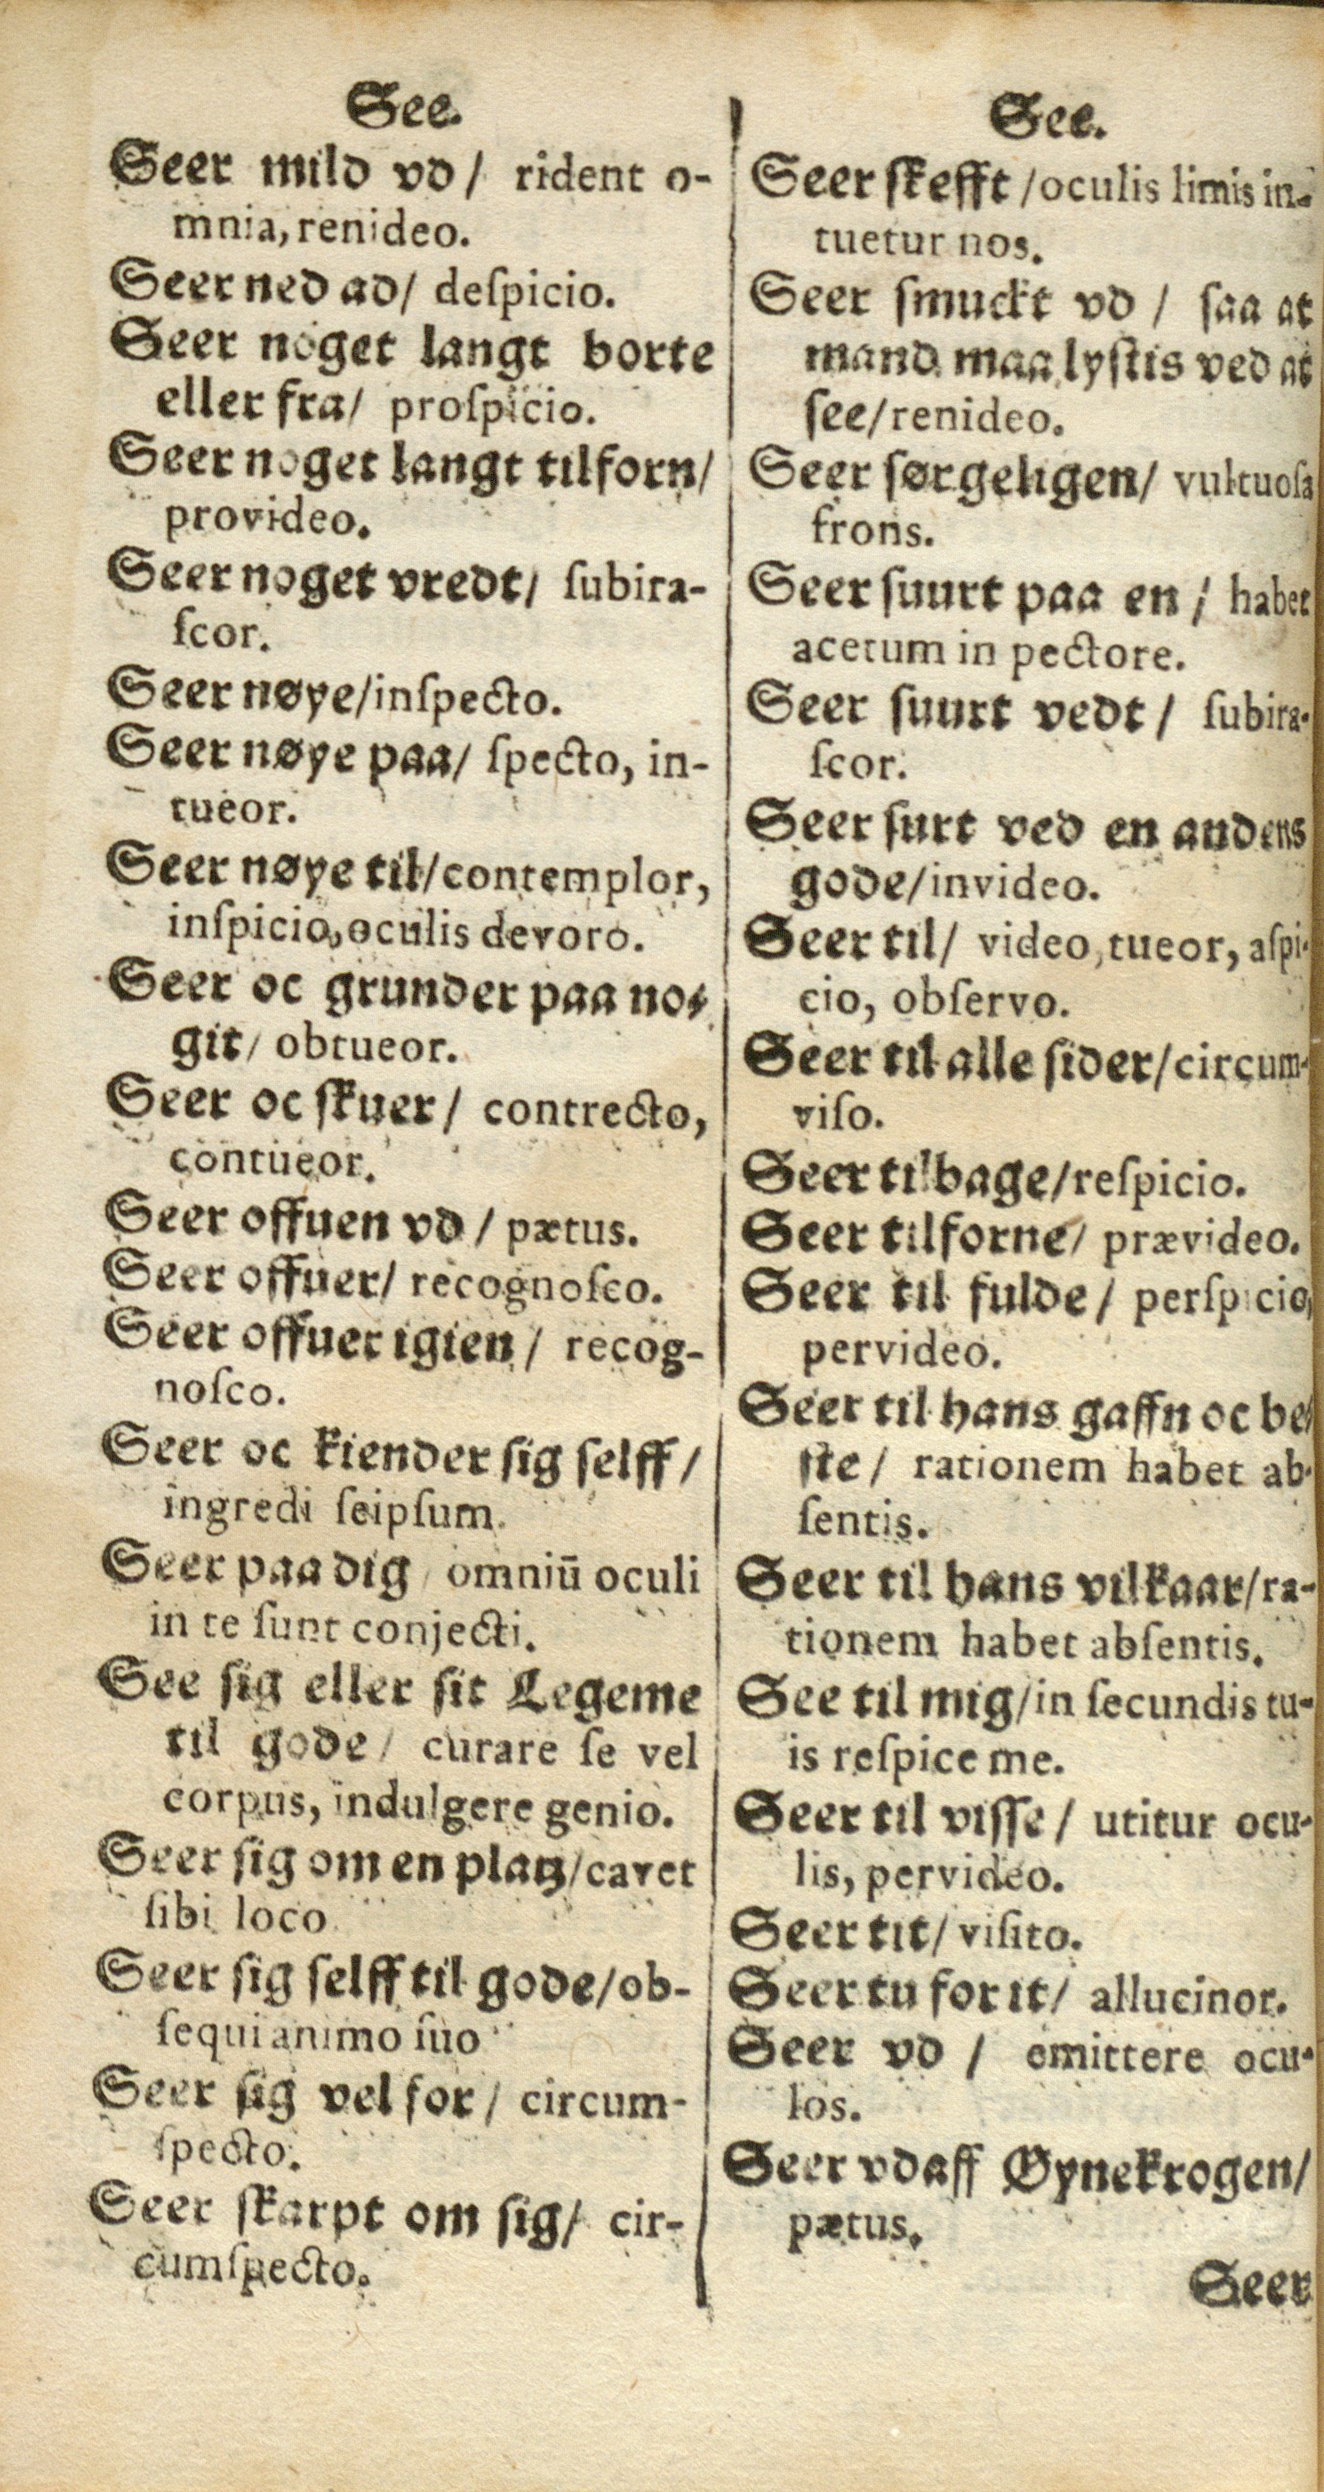 See.
Seer mild vd/ rident o-
mnia, renideo.
Seer ned ad/ deſpicio.
Seer noget langt borte
eller fra/ proſpicio.
Seer noget langt tilforn/
provideo.
Seer noget vredt/ ſubira-
ſcor.
Seer nøye/inſpecto.
Seer nøye paa/ ſpecto, in-
tueor.
Seer nøye til/contemplor,
inſpicio, oculis devoro.
Seer oc grunder paa no-
git/ obtueor.
Seer oc ſkuer/ contrecto,
contueor.
Seer offuen vd/ pætus.
Seer offuer/ recognoſco.
Seer offuer igien/ recog-
noſco.
Seer oc kiender ſig ſelff/
ingredi ſeipſum.
Seer paa dig/ omniū oculi
in te ſunt conjecti.
See ſig eller ſit Legeme
til gode/ curare ſe vel
corpus, indulgere genio.
Seer ſig om en platz/cavet
ſibi loco
Seer ſig ſelff til gode/ob-
ſequi animo ſuo
Seer ſig vel for/ circum-
ſpecto.
Seer ſkarpt om ſig/ cir-
cumſpecto.
See.
Seer ſkefft/oculis limis in-
tuetur nos.
Seer ſmuckt vd/ ſaa at
mand maa lyſtis ved at
ſee/renideo.
Seer ſørgeligen/ vultuoſa
frons.
Seer ſuurt paa en/ habet
acetum in pectore.
Seer ſuurt vedt/ ſubira-
ſcor.
Seer ſurt ved en andens
gode/invideo.
Seer til/ video, tueor, aſpi-
cio, obſervo.
Seer til alle ſider/circum-
viſo.
Seer tilbage/reſpicio.
Seer tilforne/ prævideo.
Seer til fulde/ perſpicio,
pervideo.
Seer til hans gaffn oc be-
ſte/ rationem habet ab-
ſentis.
Seer til hans vilkaar/ra-
tionem habet abſentis.
See til mig/in ſecundis tu-
is reſpice me.
Seer til viſſe/ utitur ocu-
lis, pervideo.
Seer tit/ viſito.
Seer tu for it/ allucinor.
Seer vd/ emittere ocu-
los.
Seer vdaff Øynekrogen/
pætus.
Seer